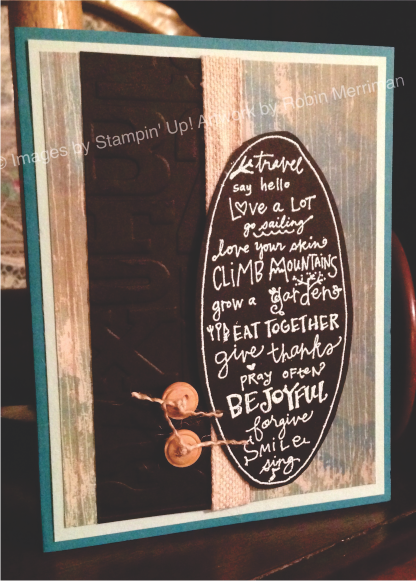 © Images by Stampin' Up! Artwork by Robin Merriman
travel
say hello
Love a LOT
go sailing
love your skin
CLiMB MOUNTAiNS
grow a garden
EAT TOGETHER
give thanks
pray often
BE JOYFUL
forgive
SMiLE
sing